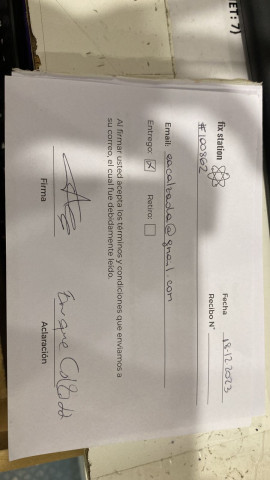 ET: 7)
fix station
Fecha 18-12 2023
#100862
Recibo N°
Email: eacalzada@gmail.com
Entrego: X Retiro:
Al firmar usted acepta los términos y condiciones que enviamos a
su correo, el cual fue debidamente leído.
Enrique Calzada
Firma Aclaración